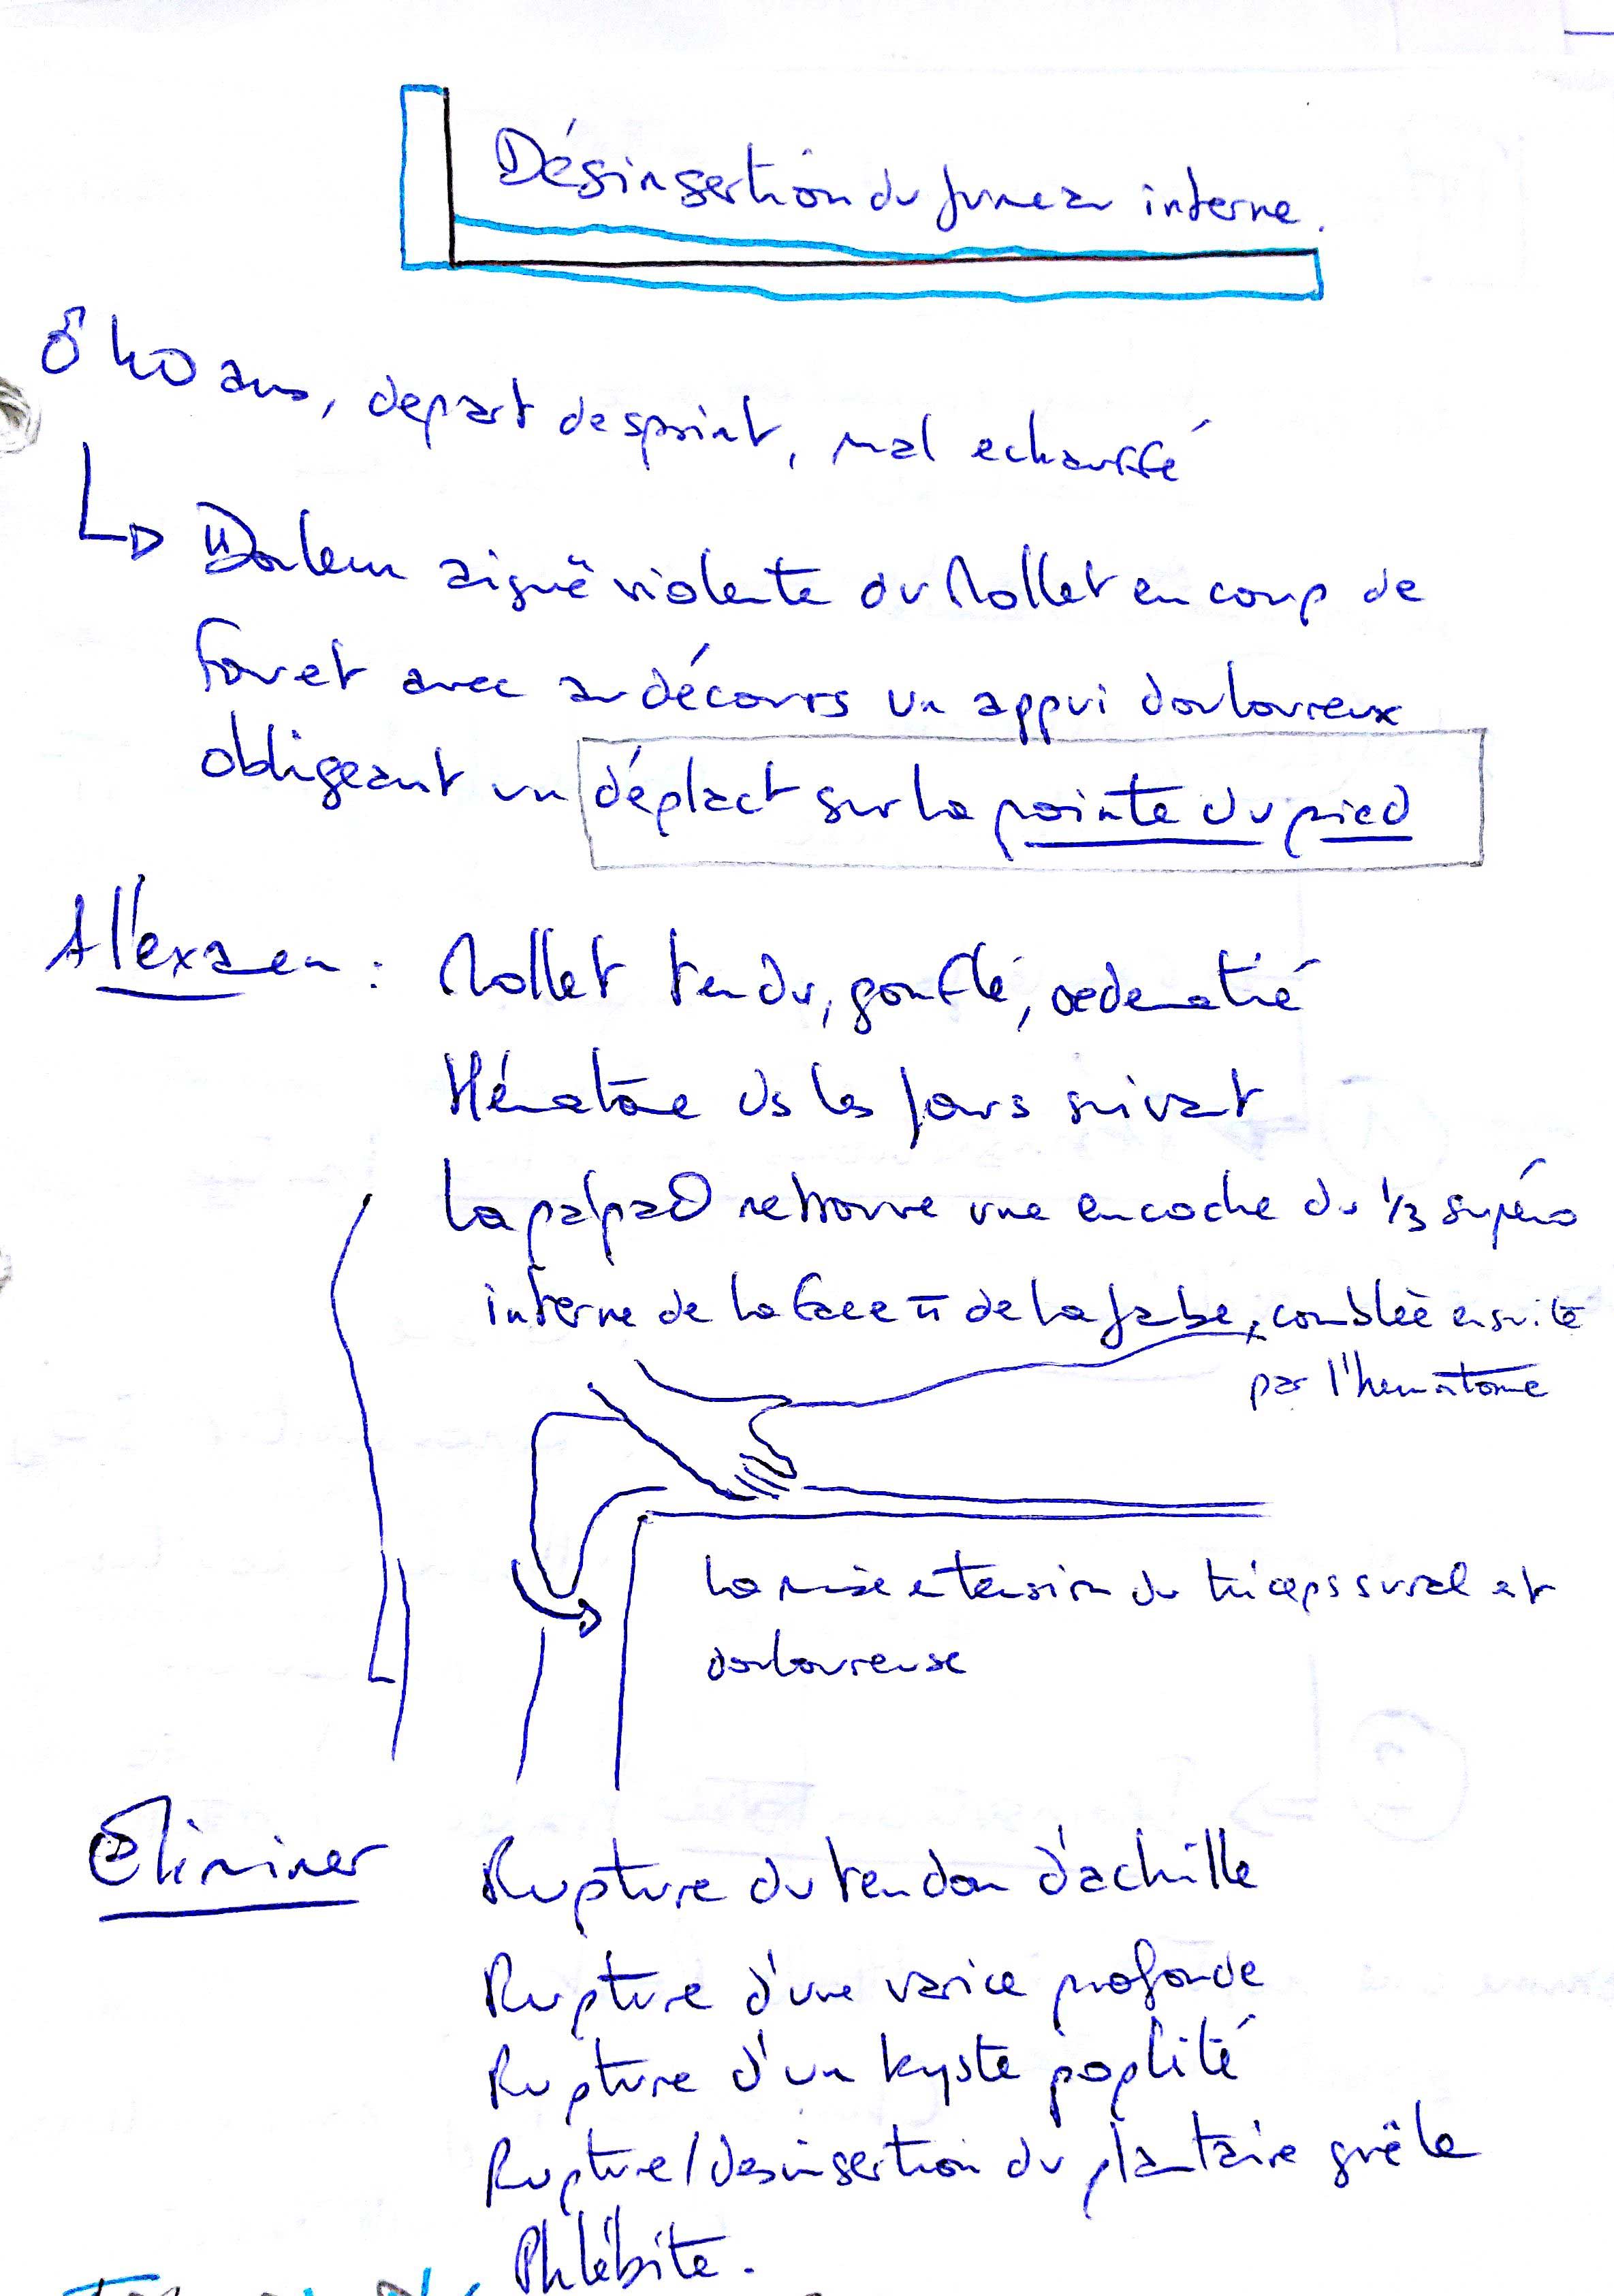 Désinsertion du jumeau interne.
♂ 40 ans, depart de sprint, mal echauffé
Douleur aiguë violente du Mollet en coup de
fouet avec au décours un appui douloureux
obligeant un déplact sur la pointe du pied
A l'examen : Mollet tendu, gonflé, oedematié
Hématome ds les jours suivant
La palpaO retrouve une encoche du 1/3 supéro
interne de la face π de la jambe, comblée ensuite
par l'hematome
La mise en tension du triceps sural est
douloureuse
éliminer Rupture du tendon d'achille
Rupture d'une varice profonde
Rupture d'un kyste poplité
Rupture/desinsertion du plantaire grêle
Phlébite.